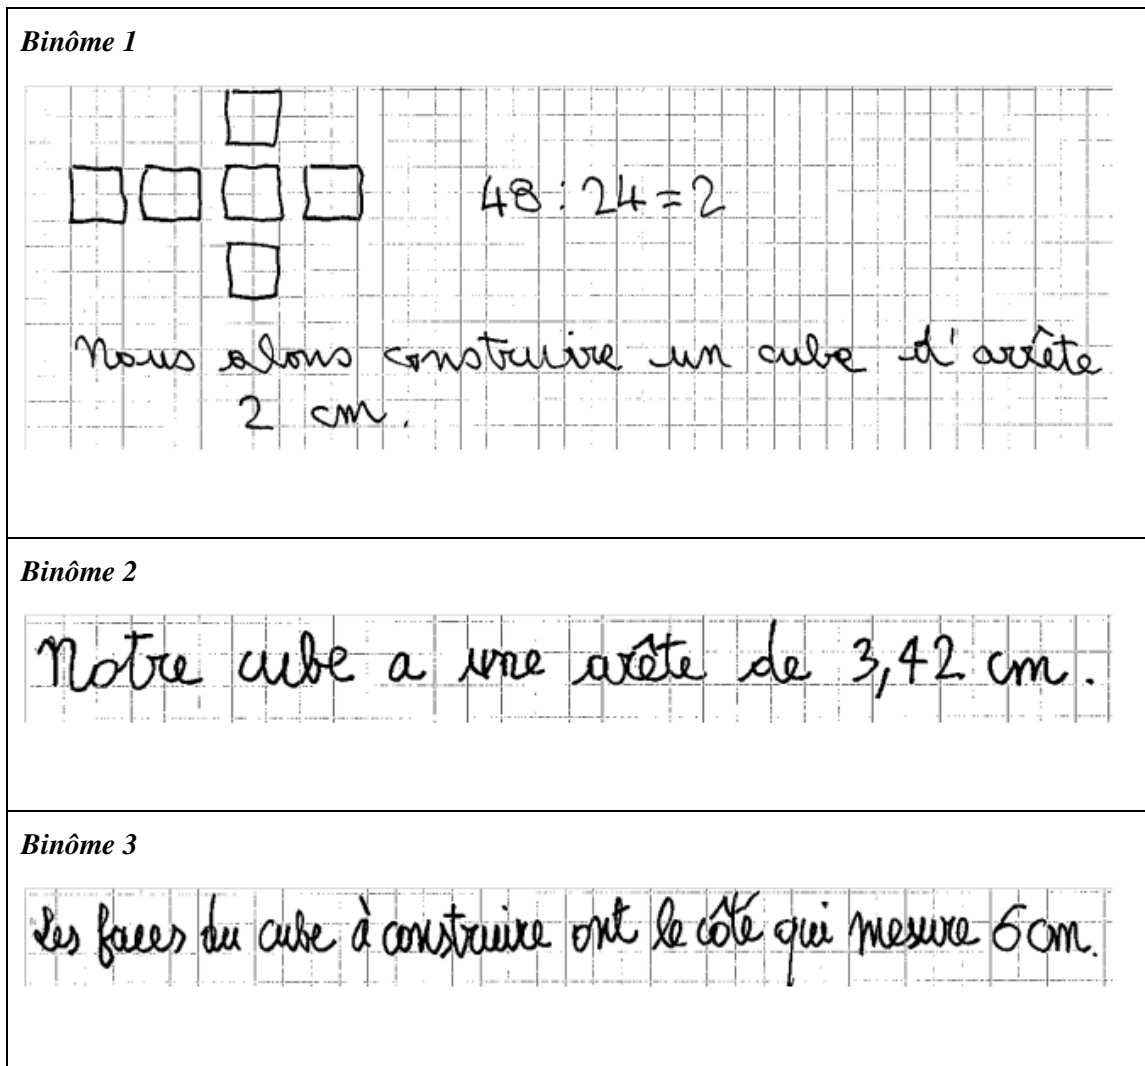 Binôme 1
48 : 24 = 2
Nous alons construire un cube d'arrête
2 cm.
Binôme 2
Notre cube a une arête de 3,42 cm.
Binôme 3
Les faces du cube à construire ont le côté qui mesure 6 cm.